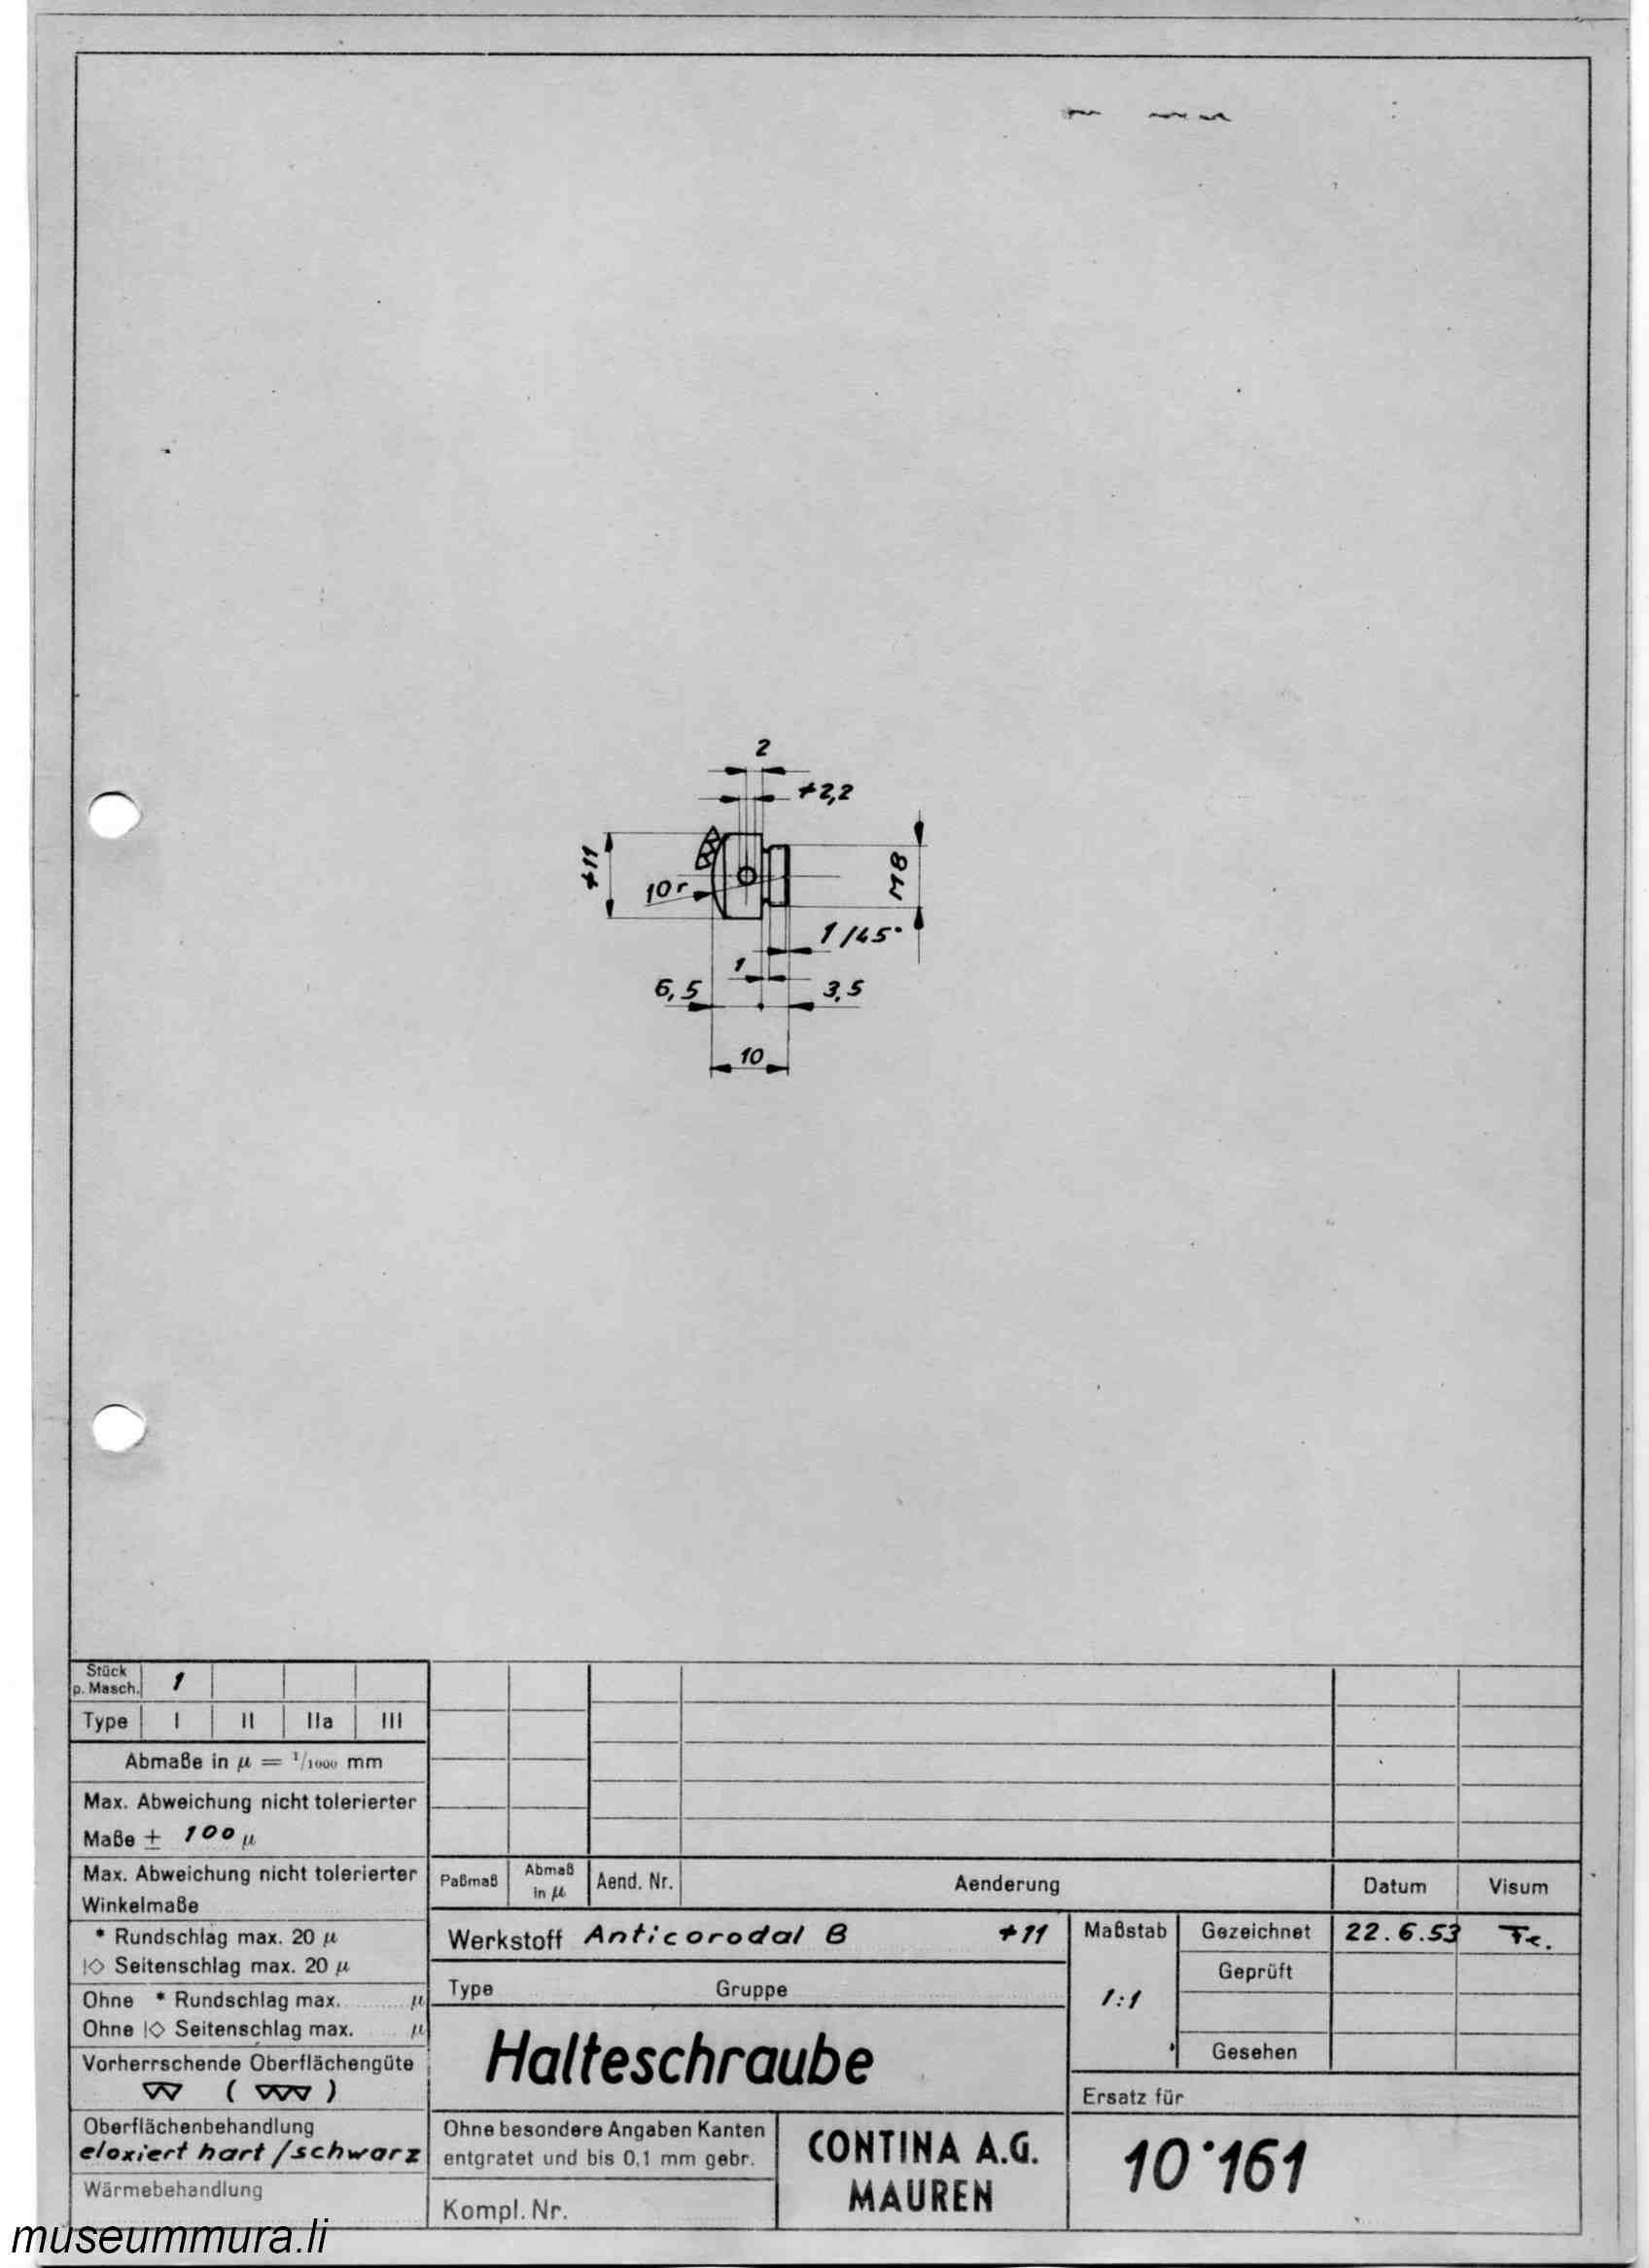 2
⌀2,2
⌀11
10r
M8
1/45°
1
6,5
3,5
10
Stück
p. Masch.
1
Type I II IIa III
Abmaße in µ = 1/1000 mm
Max. Abweichung nicht tolerierter
Maße ± 100 µ
Max. Abweichung nicht tolerierter
Winkelmaße
* Rundschlag max. 20 µ
|◇ Seitenschlag max. 20 µ
Ohne * Rundschlag max. µ
Ohne |◇ Seitenschlag max. µ
Vorherrschende Oberflächengüte
▽▽ ( ▽▽▽ )
Oberflächenbehandlung
eloxiert hart / schwarz
Wärmebehandlung
Paßmaß
Abmaß
in µ
Aend. Nr. Aenderung Datum Visum
Werkstoff Anticorodal B ⌀11
Type Gruppe
Halteschraube
Ohne besondere Angaben Kanten
entgratet und bis 0,1 mm gebr.
Kompl. Nr.
CONTINA A.G.
MAUREN
Maßstab
1:1
Gezeichnet 22.6.53
Geprüft
Gesehen
Ersatz für
10·161
museummura.li